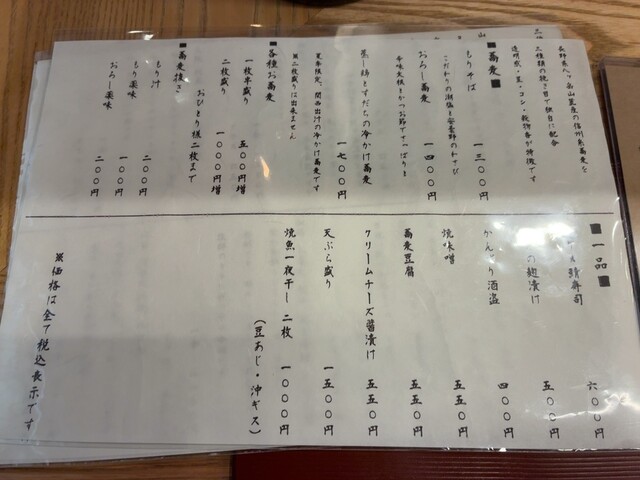 長野県八ヶ岳山麓産の信州糸蕎麦を
二種類の挽き目で独自に配合
透明感・星・コシ・穀物香が特徴です
■蕎麦■
もりそば 一三〇〇円
こだわりの潮塩と安曇野のわさび
おろし蕎麦 一四〇〇円
辛味大根とかつお節でさっぱりと
蒸し鶏とすだちの冷かけ蕎麦 一七〇〇円
夏季限定、関西出汁の冷かけ蕎麦です
※二枚盛りは出来ません
■各種お蕎麦
一枚半盛り 五〇〇円増
二枚盛り 一〇〇〇円増
おひとり様二枚まで
■蕎麦抜き
もり汁 二〇〇円
もり薬味 一〇〇円
おろし薬味 二〇〇円
■一品■
鯖寿司 六〇〇円
の麹漬け 五〇〇円
り酒盗 四〇〇円
焼味噌 五五〇円
蕎麦豆腐 五五〇円
クリームチーズ醤漬け 五五〇円
天ぷら盛り 一五〇〇円
焼魚一夜干し 二枚 一〇〇〇円
(豆あじ・沖ギス)
※価格は全て税込表示です